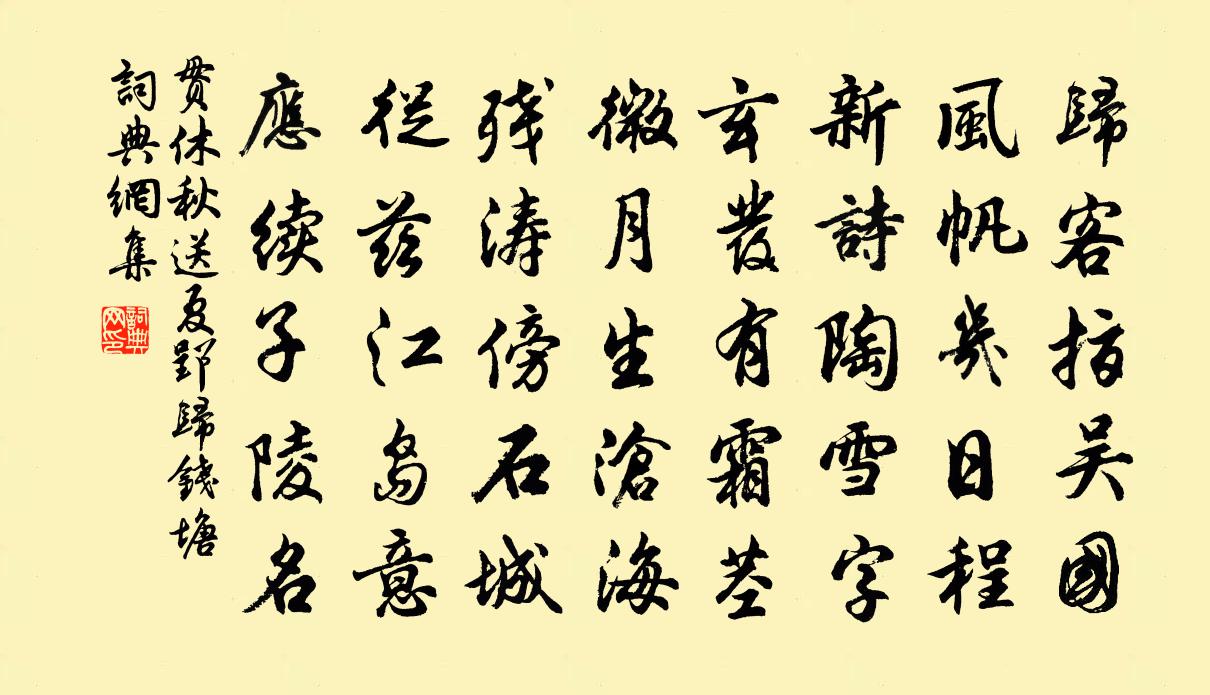 歸客指吴國
風帆幾日程
新詩陶雪字
玄發有霜茎
微月生滄海
残涛傍石城
從茲江島意
應续子陵名
貫休秋送夏郢歸錢塘
詞典網集
詞典网印